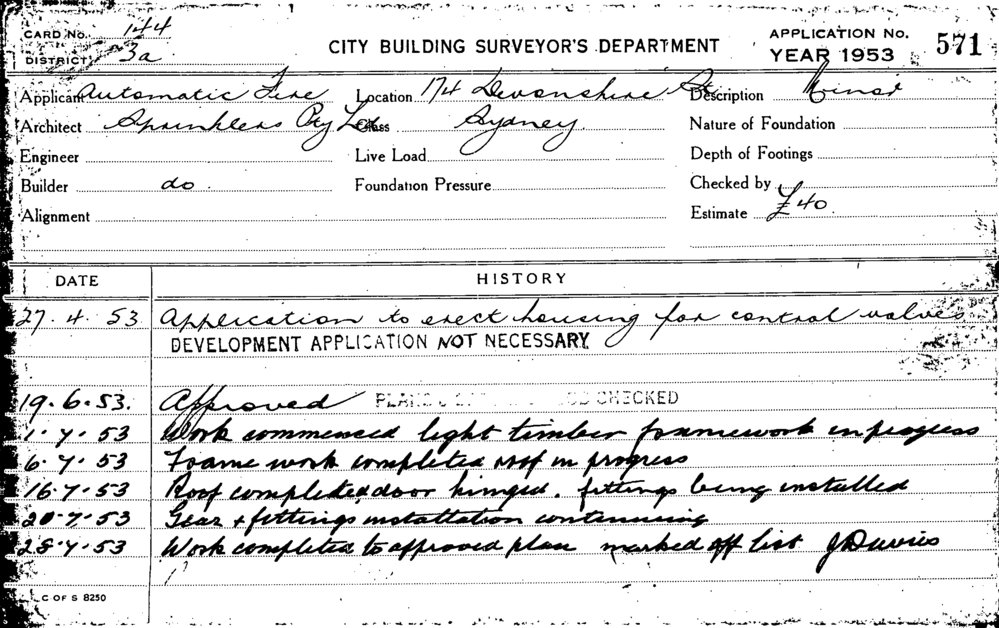 CARD No. 144
DISTRICT 3a
CITY BUILDING SURVEYOR'S DEPARTMENT
APPLICATION No.
YEAR 1953
571
Applicant Automatic Fire Location 174 Devonshire St Description Minor
Architect Sprinklers Pty Ltd Class Sydney. Nature of Foundation
Engineer Live Load Depth of Footings
Builder do Foundation Pressure Checked by
Alignment Estimate £40
DATE HISTORY
27. 4. 53 Application to erect housing for control valves
DEVELOPMENT APPLICATION NOT NECESSARY
19.6.53. Approved PLANS CHECKED
1.7.53 Work commenced light timber framework in progress
6.7.53 Frame work completed roof in progress
16.7.53 Roof completed door hinged. fittings being installed
20.7.53 Gear + fittings installation continuing
28.7.53 Work completed to approved plan marked off list J Davies
C OF S 8250